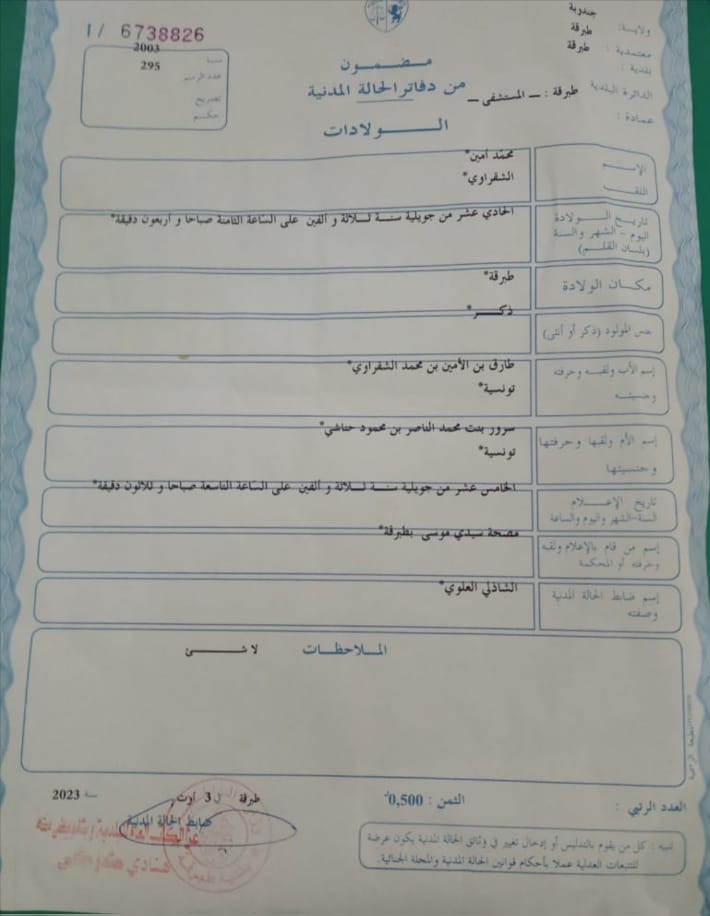 I/ 6738826
ولاية: جندوبة
معتمدية: طبرقة
بلدية: طبرقة
الدائرة البلدية: طبرقة: ــ المستشفى ــ
عمادة:
سنة 2003
عدد الرسم 295
تصريح
حكم
مضمون
من دفاتر الحالة المدنية
الولادات
الإسم محمّد أمين*
اللقب الشفراوي*
تاريخ الولادة
اليوم - الشهر والسنة
(بلسان القلم)
الحادي عشر من جويلية سنة ثلاثة و ألفين على السّاعة الثامنة صباحا و أربعون دقيقة*
مكان الولادة طبرقة*
جنس المولود (ذكر أو أنثى) ذكر*
إسم الأب ولقبه وحرفته طارق بن الأمين بن محمد الشفراوي*
وجنسيته تونسية*
إسم الأم ولقبها وحرفتها سرور بنت محمد الناصر بن محمود حناشي*
وجنسيتها تونسية*
تاريخ الإعلام
السنة-الشهر واليوم والساعة
الخامس عشر من جويلية سنة ثلاثة و ألفين على السّاعة التاسعة صباحا و ثلاثون دقيقة*
إسم من قام بالإعلام ولقبه
وحرفته أو المحكمة
مصحة سيدي موسى بطبرقة*
إسم ضابط الحالة المدنية
وصفته
الشاذلي العلوي*
الملاحظات لا شئ
العدد الرتبي :
الثمن : 0,500د
طبرقة في 3 أوت سنة 2023
ضابط الحالة المدنية
تنبيه : كل من يقوم بالتدليس أو إدخال تغيير في وثائق الحالة المدنية يكون عرضة
للتتبعات العدلية عملا بأحكام قوانين الحالة المدنية والمجلة الجنائية.